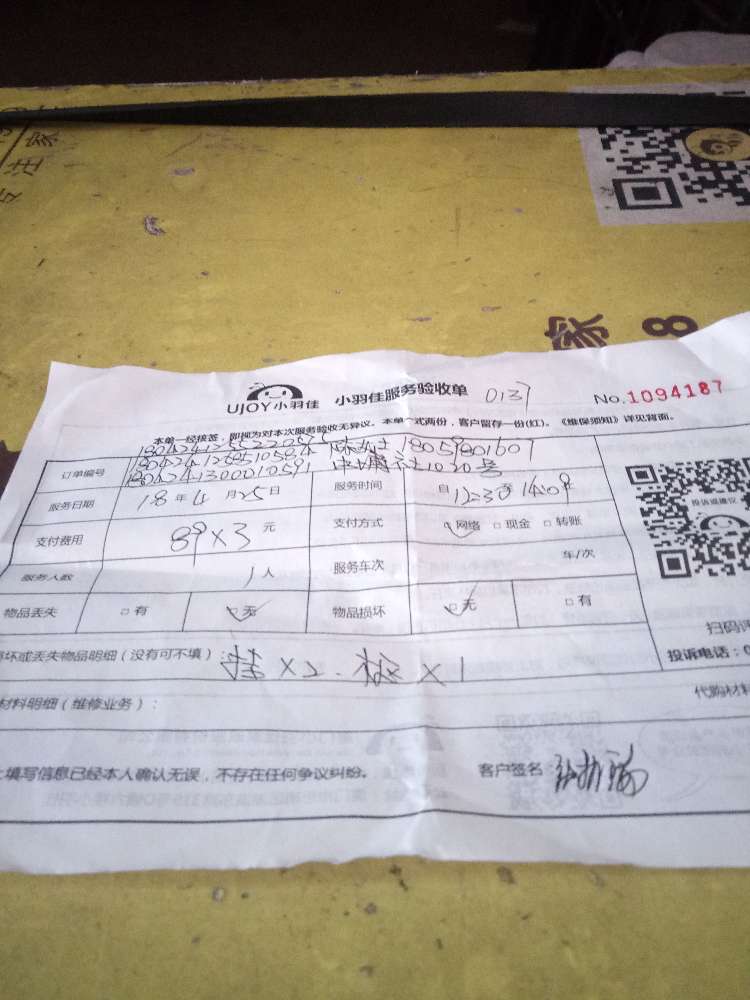 家
家
8
UJOY小羽佳 小羽佳服务验收单 0137 No.1094187
本单一经接签，即视为对本次服务验收无异议。本单一式两份，客户留存一份(红)。《维保须知》详见背面。
订单编号 18059801607
服务日期 18年4月25日 服务时间 自12:30至14:08
支付费用 89×3元 支付方式 网络 □现金 □转账
服务人数 1人 服务车次 车/次
物品丢失 □有 无 物品损坏 无 □有
投诉或建议
扫码评
坏或丢失物品明细（没有可不填）： 挂×2. 柜×1
投诉电话：0
材料明细（维修业务）： 代购材料
上填写信息已经本人确认无误，不存在任何争议纠纷。 客户签名：